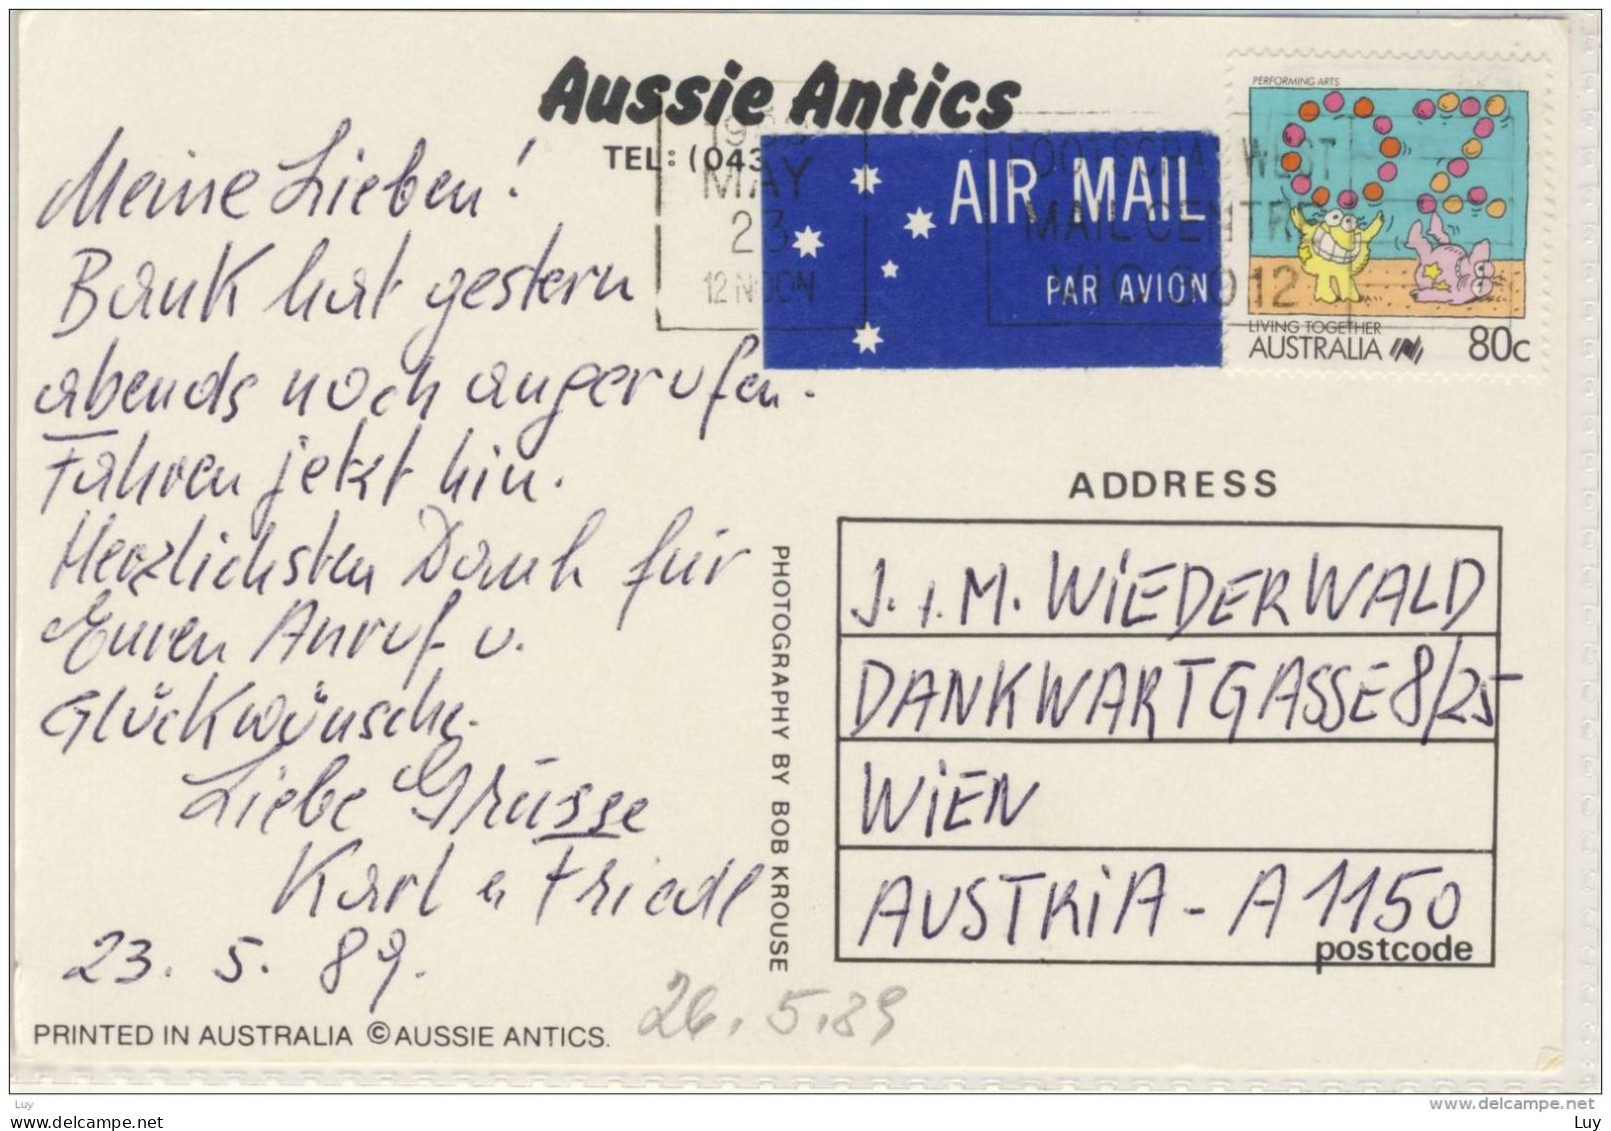 Aussie Antics
TEL: (043
Meine Lieben!
Bank hat gestern
abends noch angerufen.
Fahren jetzt hin.
Herzlichsten Dank für
Euren Anruf u.
Glückwünsche.
Liebe Grüsse
Karl u Friedl
23. 5. 89.
PRINTED IN AUSTRALIA © AUSSIE ANTICS.
26. 5. 89
PHOTOGRAPHY BY BOB KROUSE
MAY
23
12 NOON
AIR MAIL
PAR AVION
FOOTSCRAY WEST
MAIL CENTRE
VIC 3012
PERFORMING ARTS
OZ
LIVING TOGETHER
AUSTRALIA 80c
ADDRESS
J. + M. WiEDERWALD
DANKWARTGASSE 8/25
WiEN
AUSTRiA - A 1150
postcode
Luy
www.delcampe.net
Luy